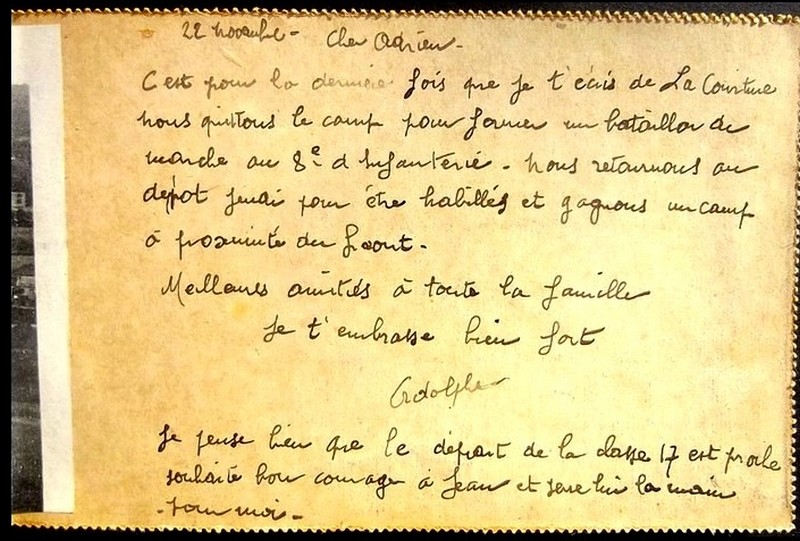 22 novembre - Cher Adrien -
C'est pour la dernière fois que je t'écris de La Courtine
nous quittons le camp pour former un bataillon de
marche au 8e d'Infanterie - nous retournons au
dépot jeudi pour être habillés et gagnons un camp
à proximité du front -
Meilleures amitiés à toute la famille
Je t'embrasse bien fort
Adolphe
Je pense bien que le départ de la classe 17 est proche
souhaite bon courage à Jean et serre lui la main
- pour moi -